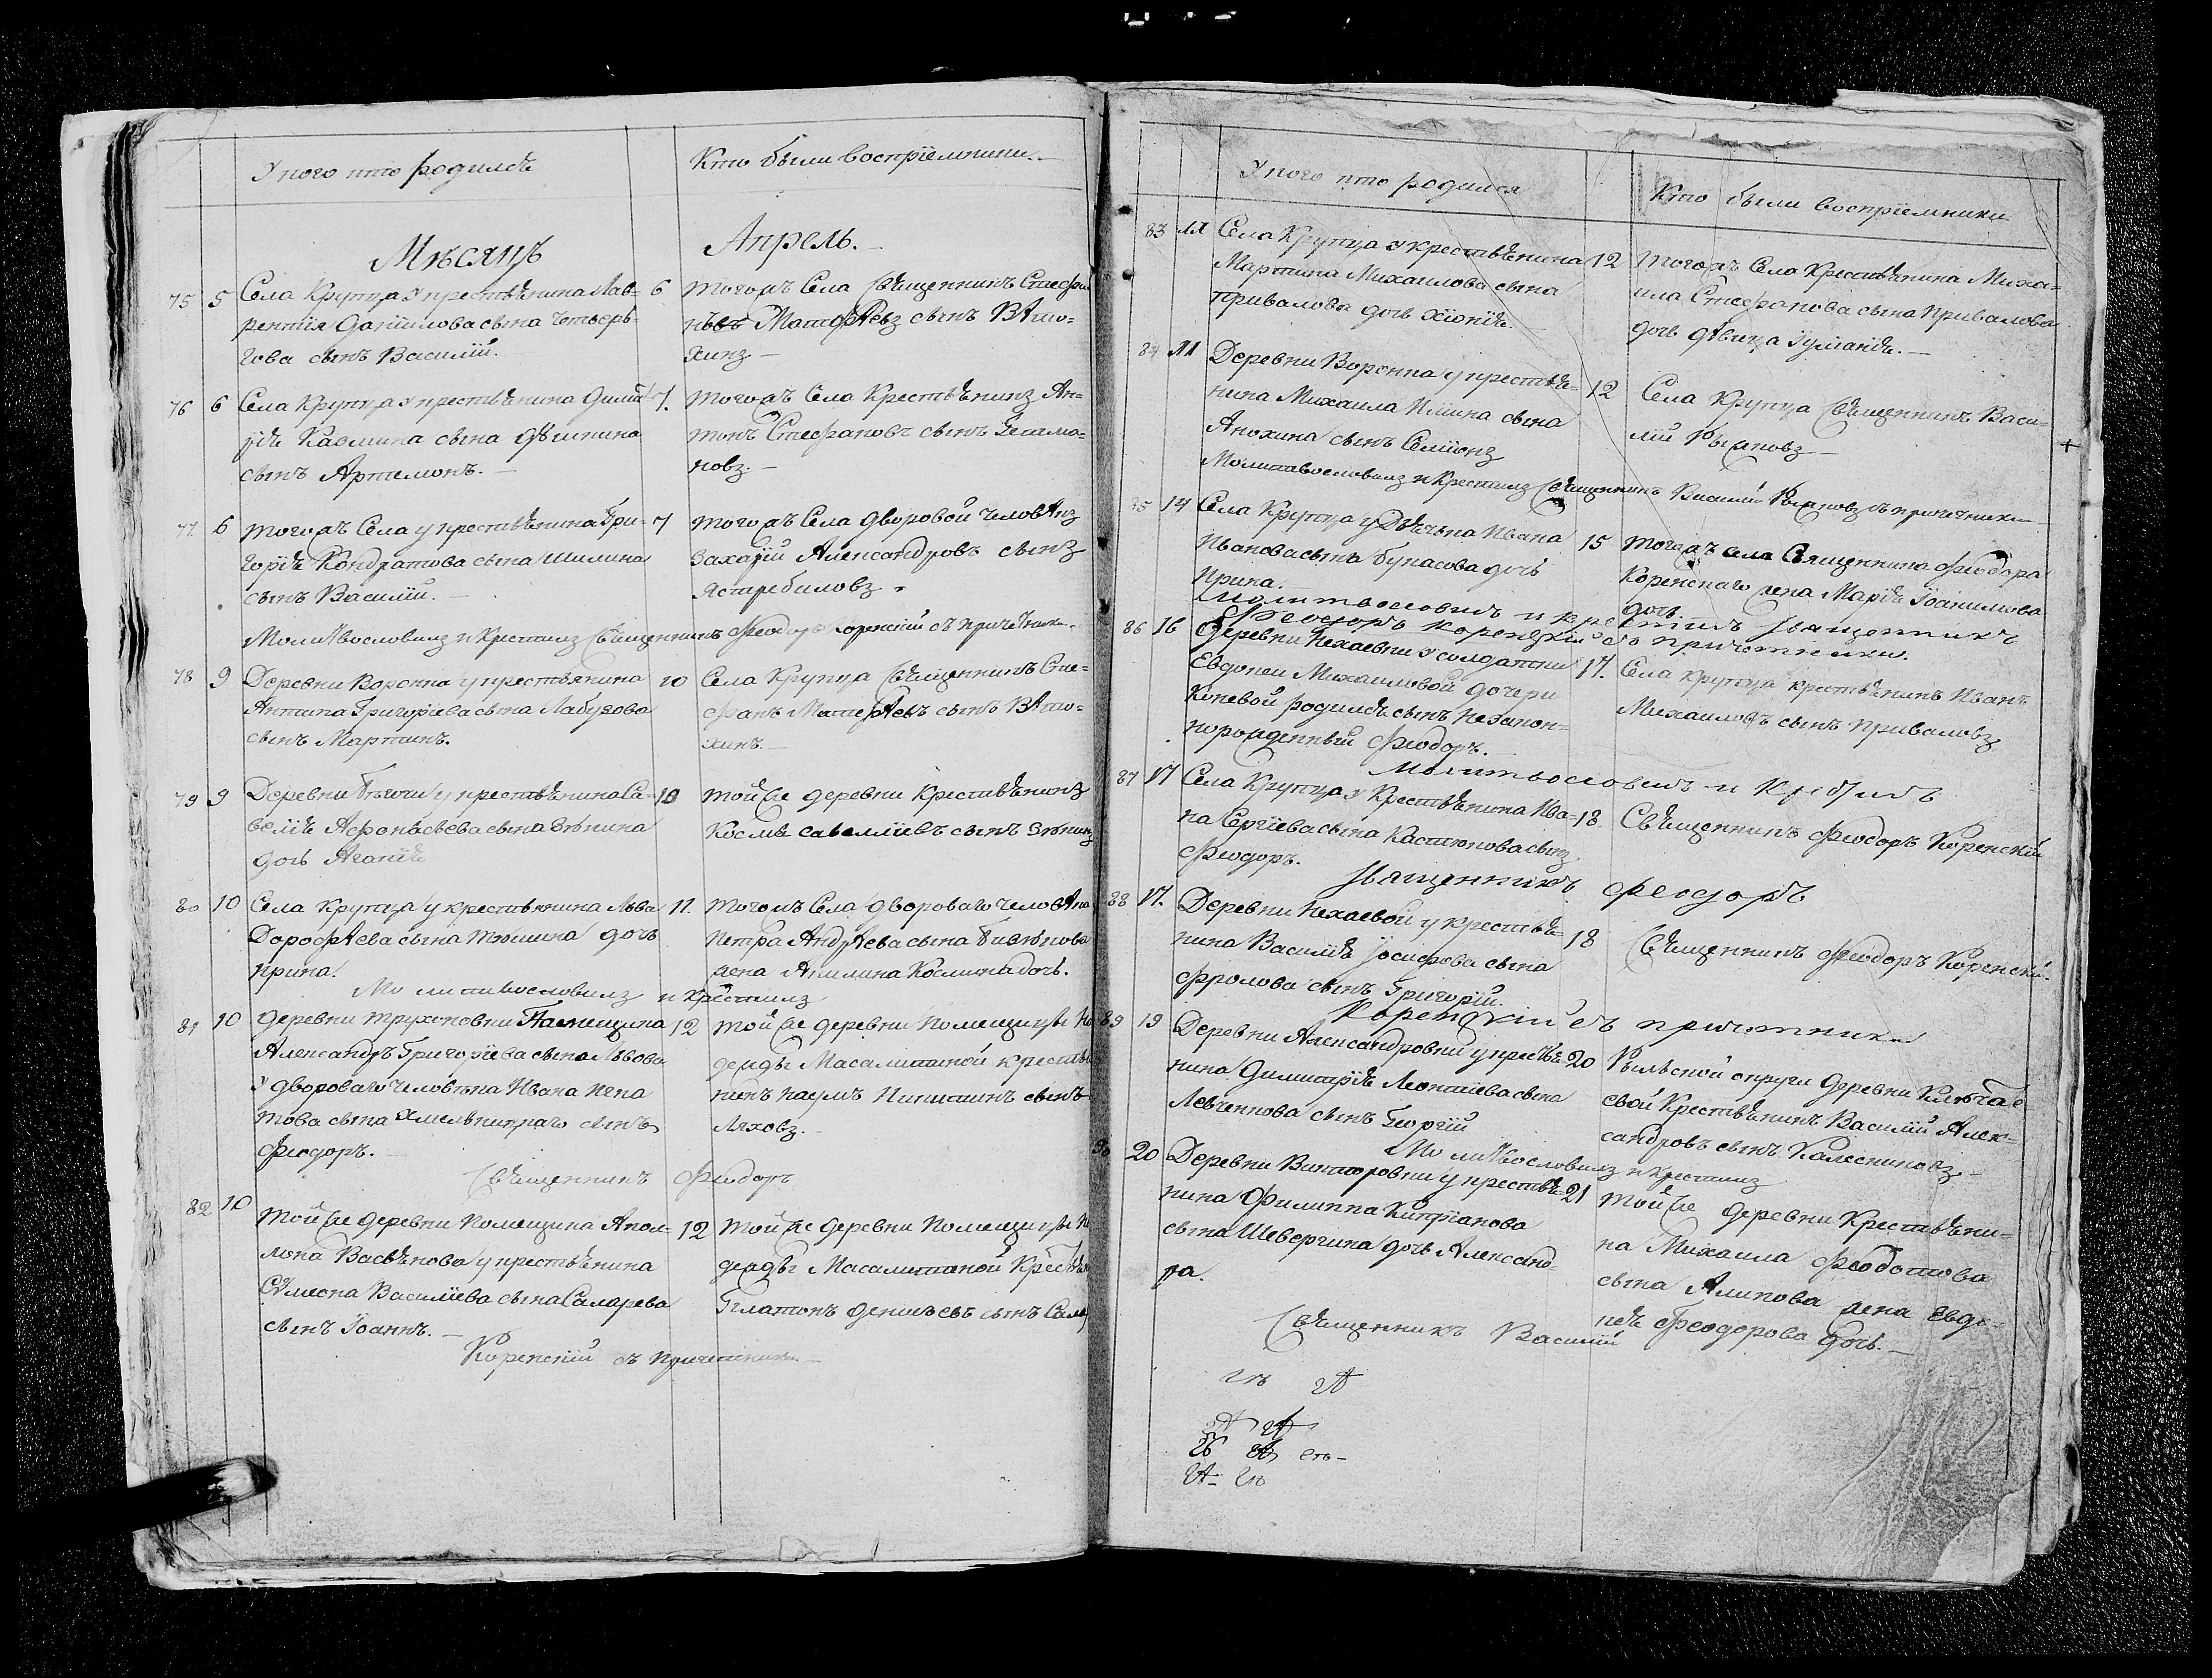 У кого кто родился
Кто были воспрiемники.
Мѣсяцъ
Апрель.
75 5 Села Крупца у крестьянина Лав-
рентiя Данiилова сына Четверь-
гова сынъ Василiй.
6 тогожъ Села Священникъ Стефа
нъ Матфѣевъ сынъ Вѣто-
хинъ
76 6 Села Крупца у крестьянина Димит-
рiя Казмина сына
сынъ Артемонъ.
7. тогожъ Села Крестьянинъ Ан-
тонъ Стефановъ сынъ
новъ.
77 6 тогожъ Села у крестьянина Гри-
горiя Кондратова сына Шилина
сынъ Василiй.
7 тогожъ Села дворовой человѣкъ
Захарiй Александровъ сынъ
Ястребиловъ
Молитвословилъ и Крестилъ Священникъ Феодоръ Коренскiй съ причетники.
78 9 Деревни Воронка у крестьянина
Антипа Григорiева сына Лабузова
сынъ Мартинъ.
10 Села Крупца Священникъ Сте-
фанъ Матфѣевъ сынъ Вѣто-
хинъ.
79 9 Деревни у крестьянина Са-
велiя Афонасьева сына Зѣнина
дочь Агапiя
10 той же деревни Крестьянинъ
Косма Савелiевъ сынъ Зѣнинъ
80 10 Села Крупца у крестьянина Льва
Дорофѣева сына дочь
Ирина.
11. тогожъ Села двороваго человѣка
Петра Андрѣева сына
жена Акилина Космина дочь.
Молитвословилъ и крестилъ
81 10 деревни Трухоновки Памещика
Александръ Григорiева сына Львова
у двороваго человѣка Ивана
това сына Хмельницкаго сынъ
Феодоръ.
12 той же деревни Помещицы На
дежды Масалитиной крестья
нинъ Наумъ Никитинъ сынъ
Ляховъ.
Священникъ Феодоръ
82 10 той же деревни Помещика Апол-
лона Васьянова у крестьянина
Василiева сына Саларева
сынъ Iоаннъ.
12 той же деревни Помещицы На
дежды Масалитиной Крестья
Платонъ Денисьевъ сынъ
Коренскiй съ причетники
У кого кто родился
Кто были воспрiемники
83 11 Села Крупца у крестьянина
Мартина Михаилова сына
Привалова дочь Хiонiя.
12 тогожъ Села Крестьянина Миха-
ила Стефанова сына Привалова
дочь дѣвица Iулианiя.
84 11 Деревни Воронка у крестья-
нина Михаила Илiина сына
Анохина сынъ Семiонъ
12 Села Крупца Священникъ Васи-
лiй
Молитвословилъ и Крестилъ Священникъ Василiй съ причетники
85 14 Села Крупца у Дьячька Ивана
Иванова сына Букасова дочь
Ирина.
15 тогожъ села Священника Феодора
Коренскаго жена Марiя Iоакимова
дочь.
Молитвословилъ и крестилъ священникъ
Феодоръ Коренскiй съ причетники.
86 16 Деревни Нехаевки у солдатки
Евдокеи Михаиловой дочери
Коневой родился сынъ незакон-
норожденный Феодоръ.
17. Села Крупца крестьянинъ Иванъ
Михаиловъ сынъ Приваловъ
Молитвословилъ и Крестилъ
87 17 Села Крупца у Крестьянина Ива-
на Сергiева сына Кастюкова сынъ
Феодоръ.
18. Священникъ Феодоръ Коренскiй
священникъ феодоръ
88 17. Деревни Нехаевой у крестья-
нина Василiя Iосифова сына
Фролова сынъ Григорiй.
18 Священникъ Феодоръ Коренскiй.
Коренскiй съ причетники
89 19 Деревни Александровки у крестья-
нина Димитрiя Леонтiева сына
Левченкова сынъ Георгiй
20 Рыльской округи деревни
свой Крестьянинъ Василiй Алек-
сандровъ сынъ Калесниковъ
Молитвословилъ и крестилъ
90 20 Деревни Викторовки у крестья-
нина Филиппа Киприанова
сына Шевергина дочь Александ-
ра.
21 той же деревни Крестьяни-
на Михаила Федотова
сына Алипова жена Евдо-
кея Феодорова дочь.
Священникъ Василiй